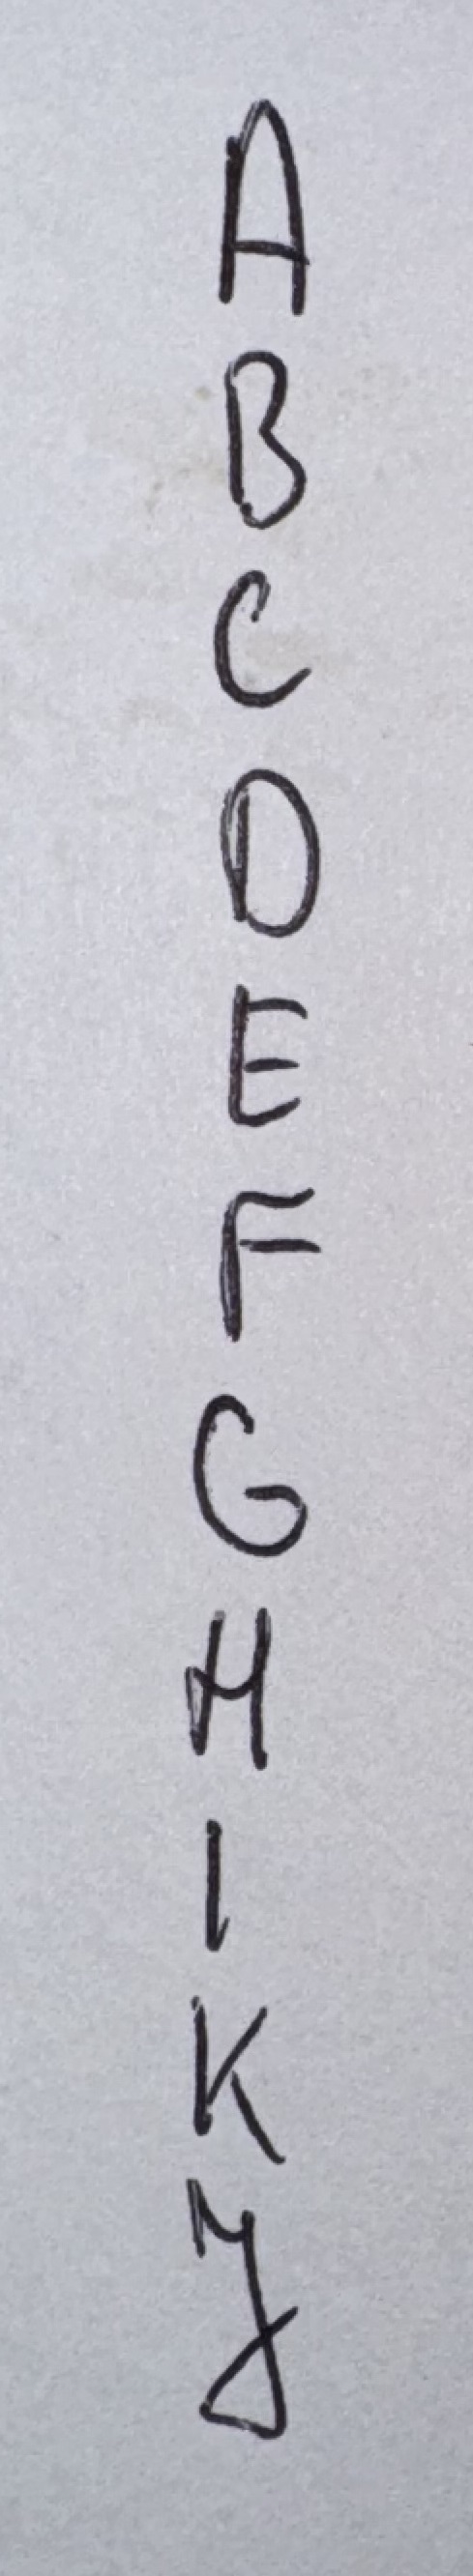 A
B
C
D
E
F
G
H
I
K
Y